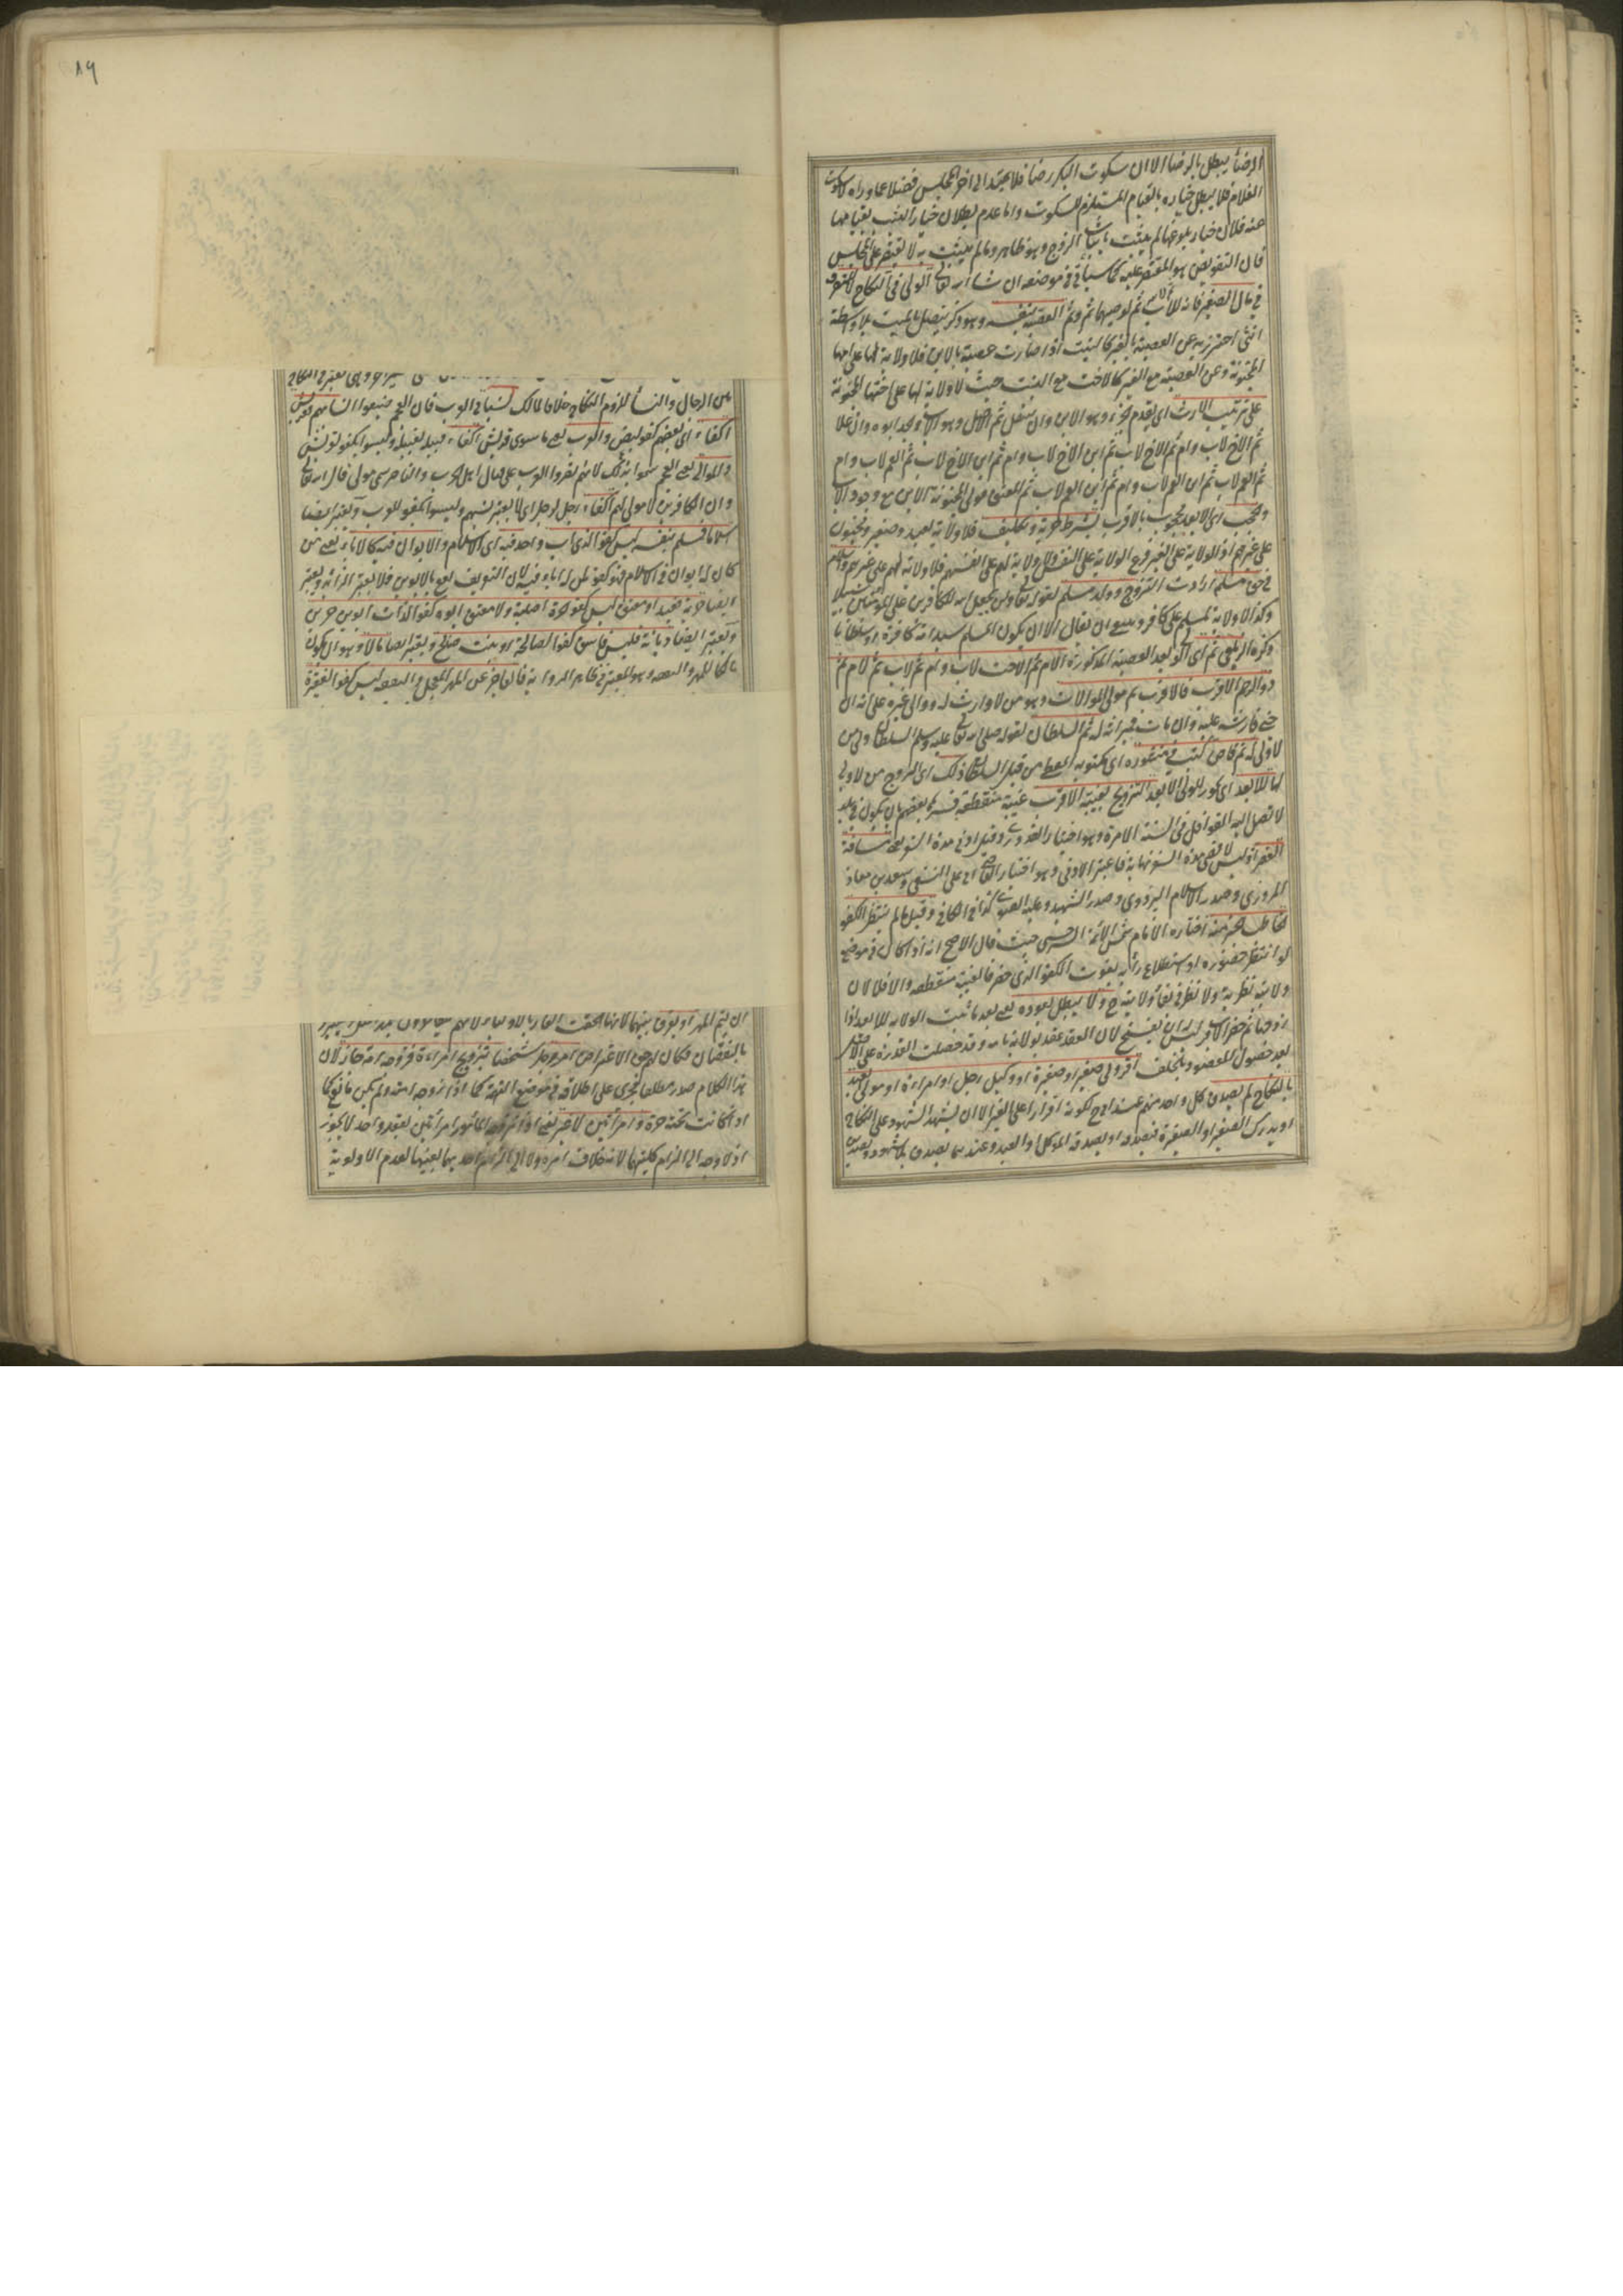 الرضا يبطل بالرضا الا ان سكوت البكر رضا فلا يمتد الى اخر المجلس فضلا عما وراه لا سكوت
الغلام فلا يبطل خياره بالقيام المستلزم للسكوت واما عدم بطلان خيار الثيب بقيامها
عنه فلان خيار بلوغها لم يثبت باثبات الزوج وهو ظاهر وما لم يثبت به لا يقتصر على المجلس
فان التفويض هو المقتصر عليه كما سيأتى فى موضعه ان شاء الله تعالى الولى فى النكاح لا التصرف
فى مال الصغير فانه للاب ثم لوصيهما ثم وثم العصبة بنفسه وهو ذكر يتصل بالميت بلا واسطة
انثى احترز به عن العصبة بالغير كالبنت اذا صارت عصبة بالابن فلا ولاية لها على امها
المجنونة وعن العصبة مع الغير كالاخت مع البنت حيث لا ولاية لها على اختها المجنونة
على ترتيب الارث اى يقدم الجزء وهو الابن وان سفل ثم الاصل وهو الاب والجد ابوه وان علا
ثم الاخ لاب وام ثم الاخ لاب ثم ابن الاخ لاب وام ثم ابن الاخ لاب ثم العم لاب وام
ثم العم لاب ثم ابن العم لاب وام ثم ابن العم لاب ثم المعتق مولى المجنونة الابن مع وجود الاب
والحجب اى الابعد محجوب بالاقرب بشرط حرية وتكليف فلا ولاية لعبد وصغير ومجنون
على غيرهم اذ الولاية على الغير فرع الولاية على النفس ولا ولاية لهم على انفسهم فلا ولاية لهم على غيرهم واسلام
فى حق مسلم ارادت التزوج وولد مسلم لقوله تعالى ولن يجعل الله للكافرين على المؤمنين سبيلا
وكذا لا ولاية لمسلم على كافر وينبغى ان يقال الا ان يكون المسلم سيد امة كافرة او سلطانا
ذكره الزيلعى ثم اى الولى بعد العصبة المذكورة الام ثم الاخت لاب وام ثم لاب ثم لام ثم
ذو الرحم الاقرب فالاقرب ثم مولى الموالات وهو من لا وارث له ووالى غيره على انه ان
جنى فارشه عليه وان مات فميراثه له ثم السلطان لقوله صلى الله تعالى عليه وسلم السلطان ولى من
لا ولى له ثم قاض كتب فى منشوره اى مكتوبه المعطى من قبل السلطان ذلك اى تزويج من لا ولى
لها للابعد اى يجوز للولى الابعد التزويج بغيبة الاقرب غيبة منقطعة فسره بعضهم بان يكون فى بلد
لا تصل اليه القوافل فى السنة الا مرة وهو اختيار القدورى وقيل ادنى مدة السفر يعنى مسافة
القصر اذ ليس لاقصى مدة السفر نهاية فاعتبر الادنى وهو اختيار القاضى ابى على النسفى وسعد بن معاذ
المروزى وصدر الاسلام البزدوى وصدر الشهيد وعليه الفتوى كذا فى الكافى وقيل ما لم ينتظر الكفو
الخاطب خبره اختاره الامام شمس الائمة السرخسى حيث قال الاصح انه اذا كان فى موضع
لو انتظر حضوره او استطلاع رأيه يفوت الكفو الذى حضر فالغيبة منقطعة والا فلا لان
ولايته نظرية ولا نظر فى بقاء ولايته ح ولا يبطل بعوده يعنى بعد ما ثبت الولاية للابعد اذا
زوجها ثم حضر الاقرب ليس له ان يفسخ لان العقد عقد بولاية تامة وقد حصلت القدرة على الاصل
بعد حصول المقصود بالخلف اقر ولى صغير او صغيرة او وكيل رجل او امراءة او مولى العبد
بالنكاح لم يصدق كل واحد منهم عند ابى ح لكونه اقرارا على الغير الا ان يشهد الشهود على النكاح
او يدرك الصغير او الصغيرة فيصدقه او يصدقه الموكل او العبد وعندهما يصدق بلا شهود وتصديق
٨٩
من الرجال والنساء للزوم النكاح خلافا لمالك نسبا فى العرب فان العجم ضيعوا انسابهم فقريش
اكفاء اى بعضهم كفو لبعض والعرب يعنى ما سوى قريش اكفاء قبيلة لقبيلة وليسوا بكفو لقريش
والموالى يعنى العجم سموا بذلك لانهم نصروا العرب على قتال اهل الحرب والناصر يسمى مولى قال الله تعالى
وان الكافرين لا مولى لهم اكفاء رجل لرجل اى لا يعتبر نسبهم وليسوا بكفو للعرب ويعتبر ايضا
اسلاما فمسلم بنفسه ليس كفوا لذى اب واحد فيه اى الاسلام والابوان فيه كالاباء يعنى من
كان له ابوان فى الاسلام فهو كفو لمن له اباء فيه لان التعريف يقع بالابوين فلا يعتبر الزائد ويعتبر
ايضا حرية فعبد او معتق ليس كفو لحرة اصلية ولا معتق ابوه كفوا لذات ابوين حرين
ويعتبر ايضا ديانة فليس فاسق كفوا لصالحة او بنت صالح ويعتبر ايضا مالا وهو ان يكون
مالكا للمهر والنفقة وهو المعتبر فى ظاهر الرواية فالعاجز عن المهر المعجل والنفقة ليس كفوا لفقيرة
ان يتم المهر او يفرق بينهما لانها الحقت العار بالاولياء لانهم
بالنقصان فكان لهم حق الاعتراض امر رجل شخصا بتزويج امراءة فزوجه امة جاز لان
هذا الكلام صدر مطلقا فيجرى على اطلاقه فى موضع التهمة كما اذا زوجه امته ولم يكن مانع كما
اذا كانت تحته حرة وامرأتين لا غير يعنى اذا زوجه المأمور امرأتين بعقد واحد لا يجوز
اذ لا وجه الى الزام كليتهما لانه خلاف امره ولا الى الزام احديهما بعينها لعدم الاولوية